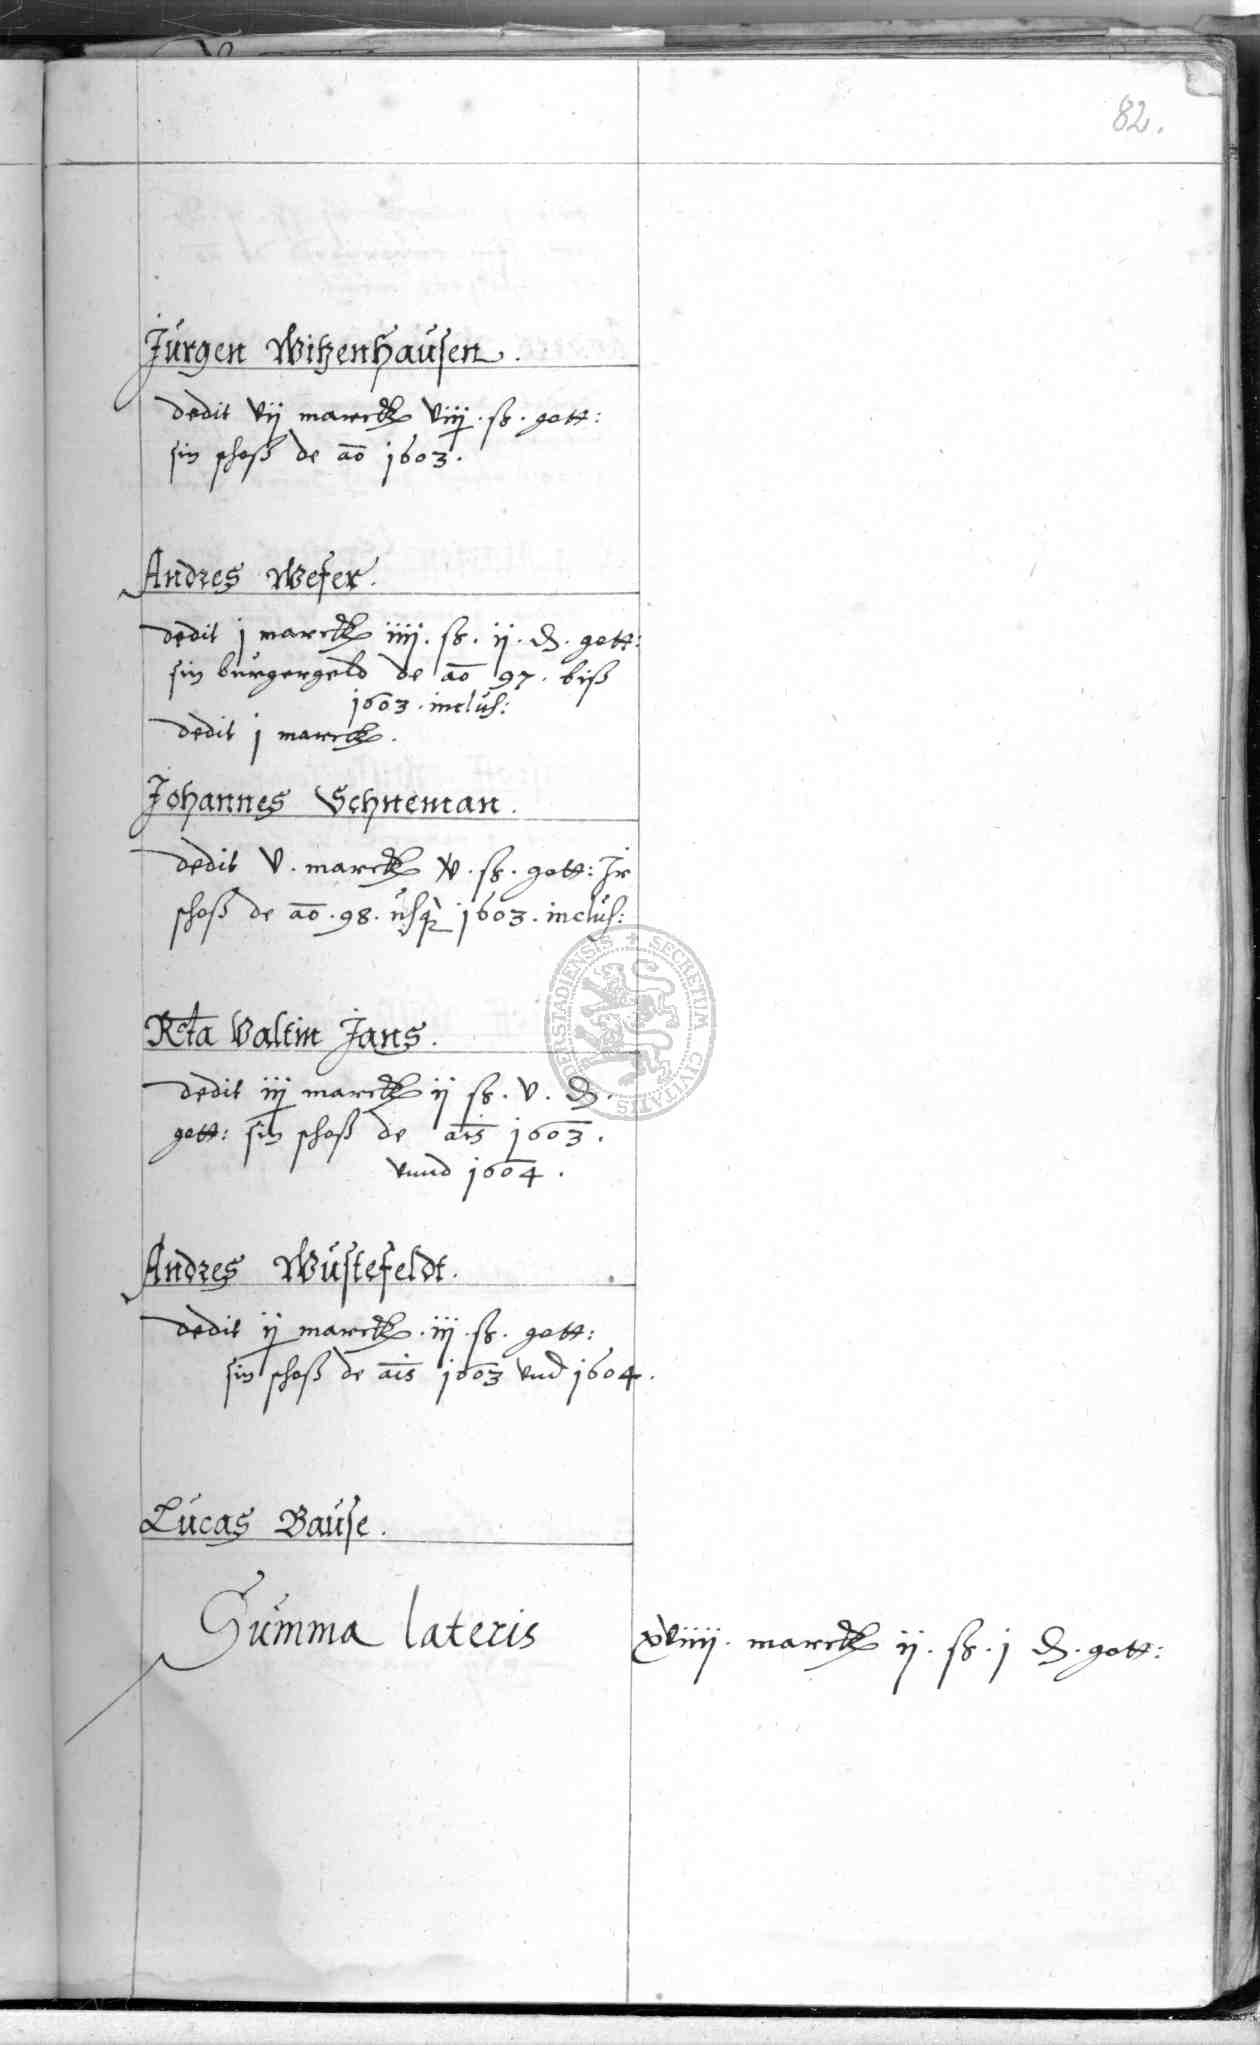 82.
Jürgen Witzenhausen.
dedit vij marck viiij. ß. gott:
sin schoß de ao 1603.
Andres Wefer.
dedit j marck iiij. ß. ij. ₰. gott:
sin bürgergeld de ao 97. biß
1603. inclus:
dedit j marck.
Johannes Schneman.
dedit v. marck xv. ß. gott: Jr
schoß de ao. 98. usq 1603. inclus:
Rcta Valtin Jans.
dedit iij marck ij ß. v. ₰.
gott: sin schoß de ais 1603.
vnnd 1604.
Andres Wüstefeldt.
dedit ij marck. iij. ß. gott:
sin schoß de ais 1603 vnd 1604.
Lucas Bause.
Summa lateris xviiij. marck ij. ß. j ₰. gott:
SECRETUM CIVITATIS DERSTADIENSIS